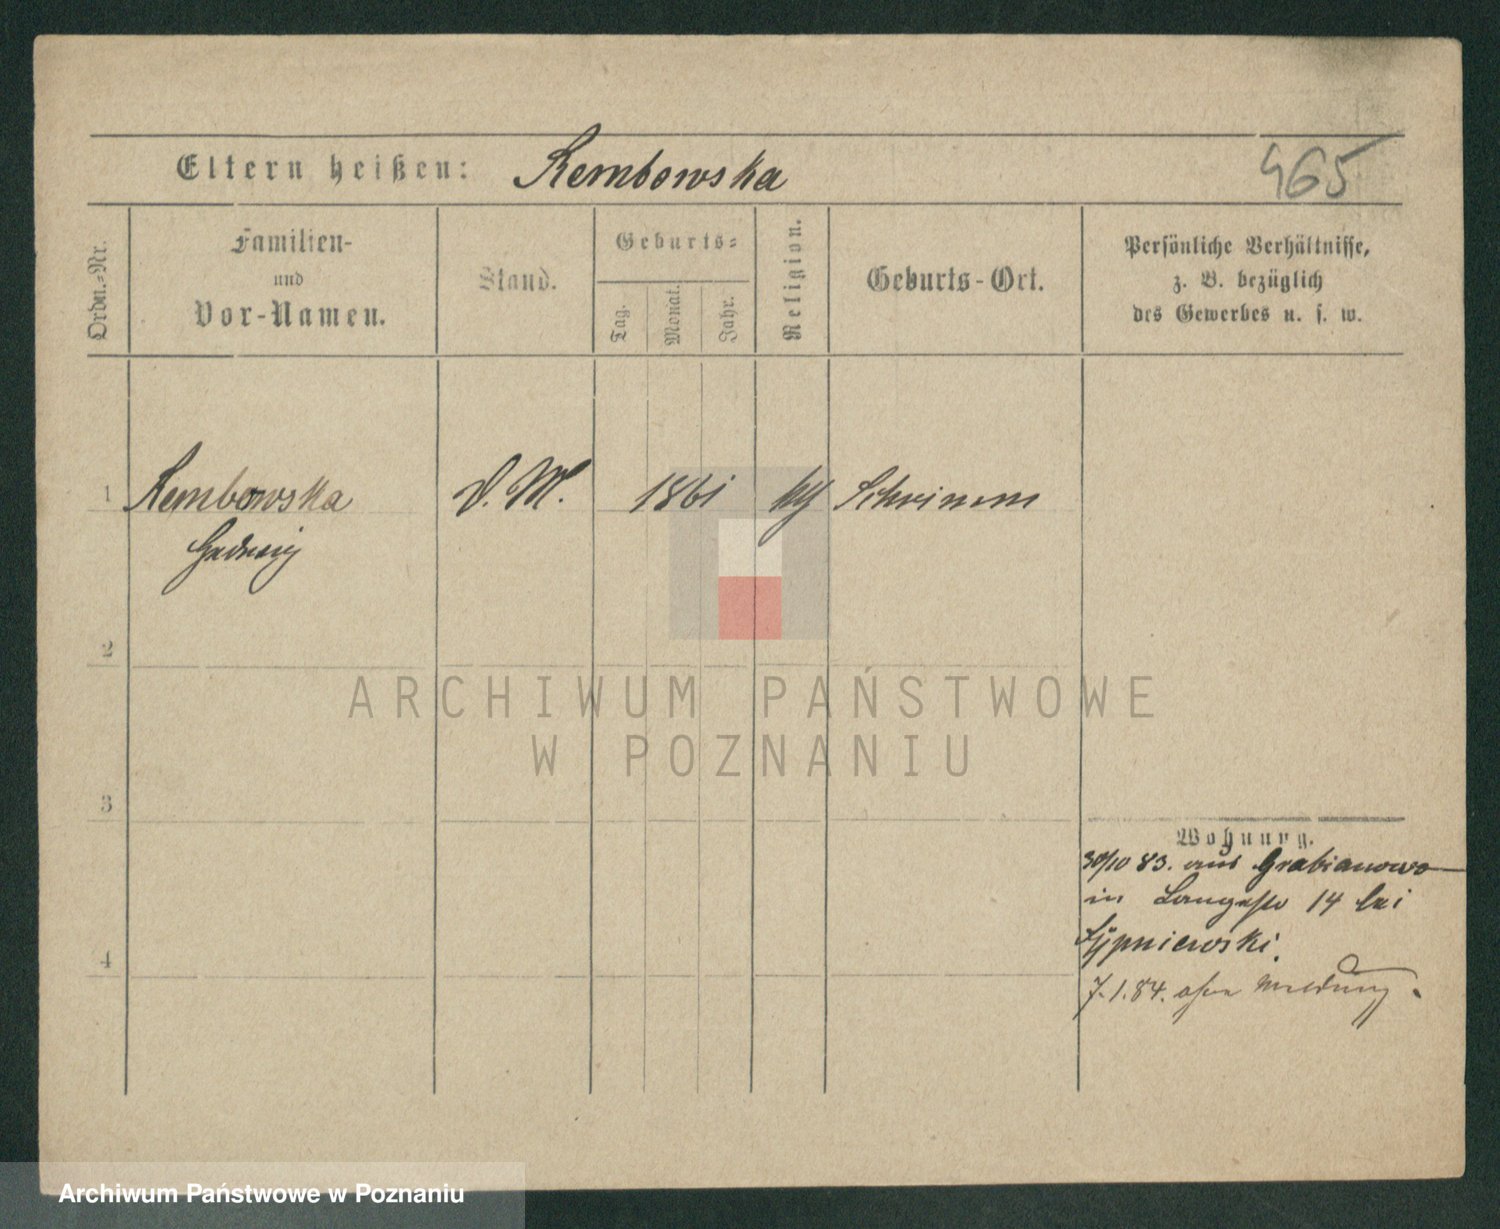 Eltern heißen: Rembowska 465
Ordn.-Nr.
Familien-
und
Vor-Namen.
Stand.
Geburts-
Tag. Monat. Jahr.
Religion.
Geburts-Ort.
Persönliche Verhältnisse,
z. B. bezüglich
des Gewerbes u. s. w.
1 Rembowska D. M. 1861 kth Schrimm
Hedwig
2
ARCHIWUM PAŃSTWOWE
W POZNANIU
3
Wohnung.
30/10 83. aus Grabianowo
in Langestr 14 bei
Sypniewski.
4
7.1.84. ohne Meldung.
Archiwum Państwowe w Poznaniu